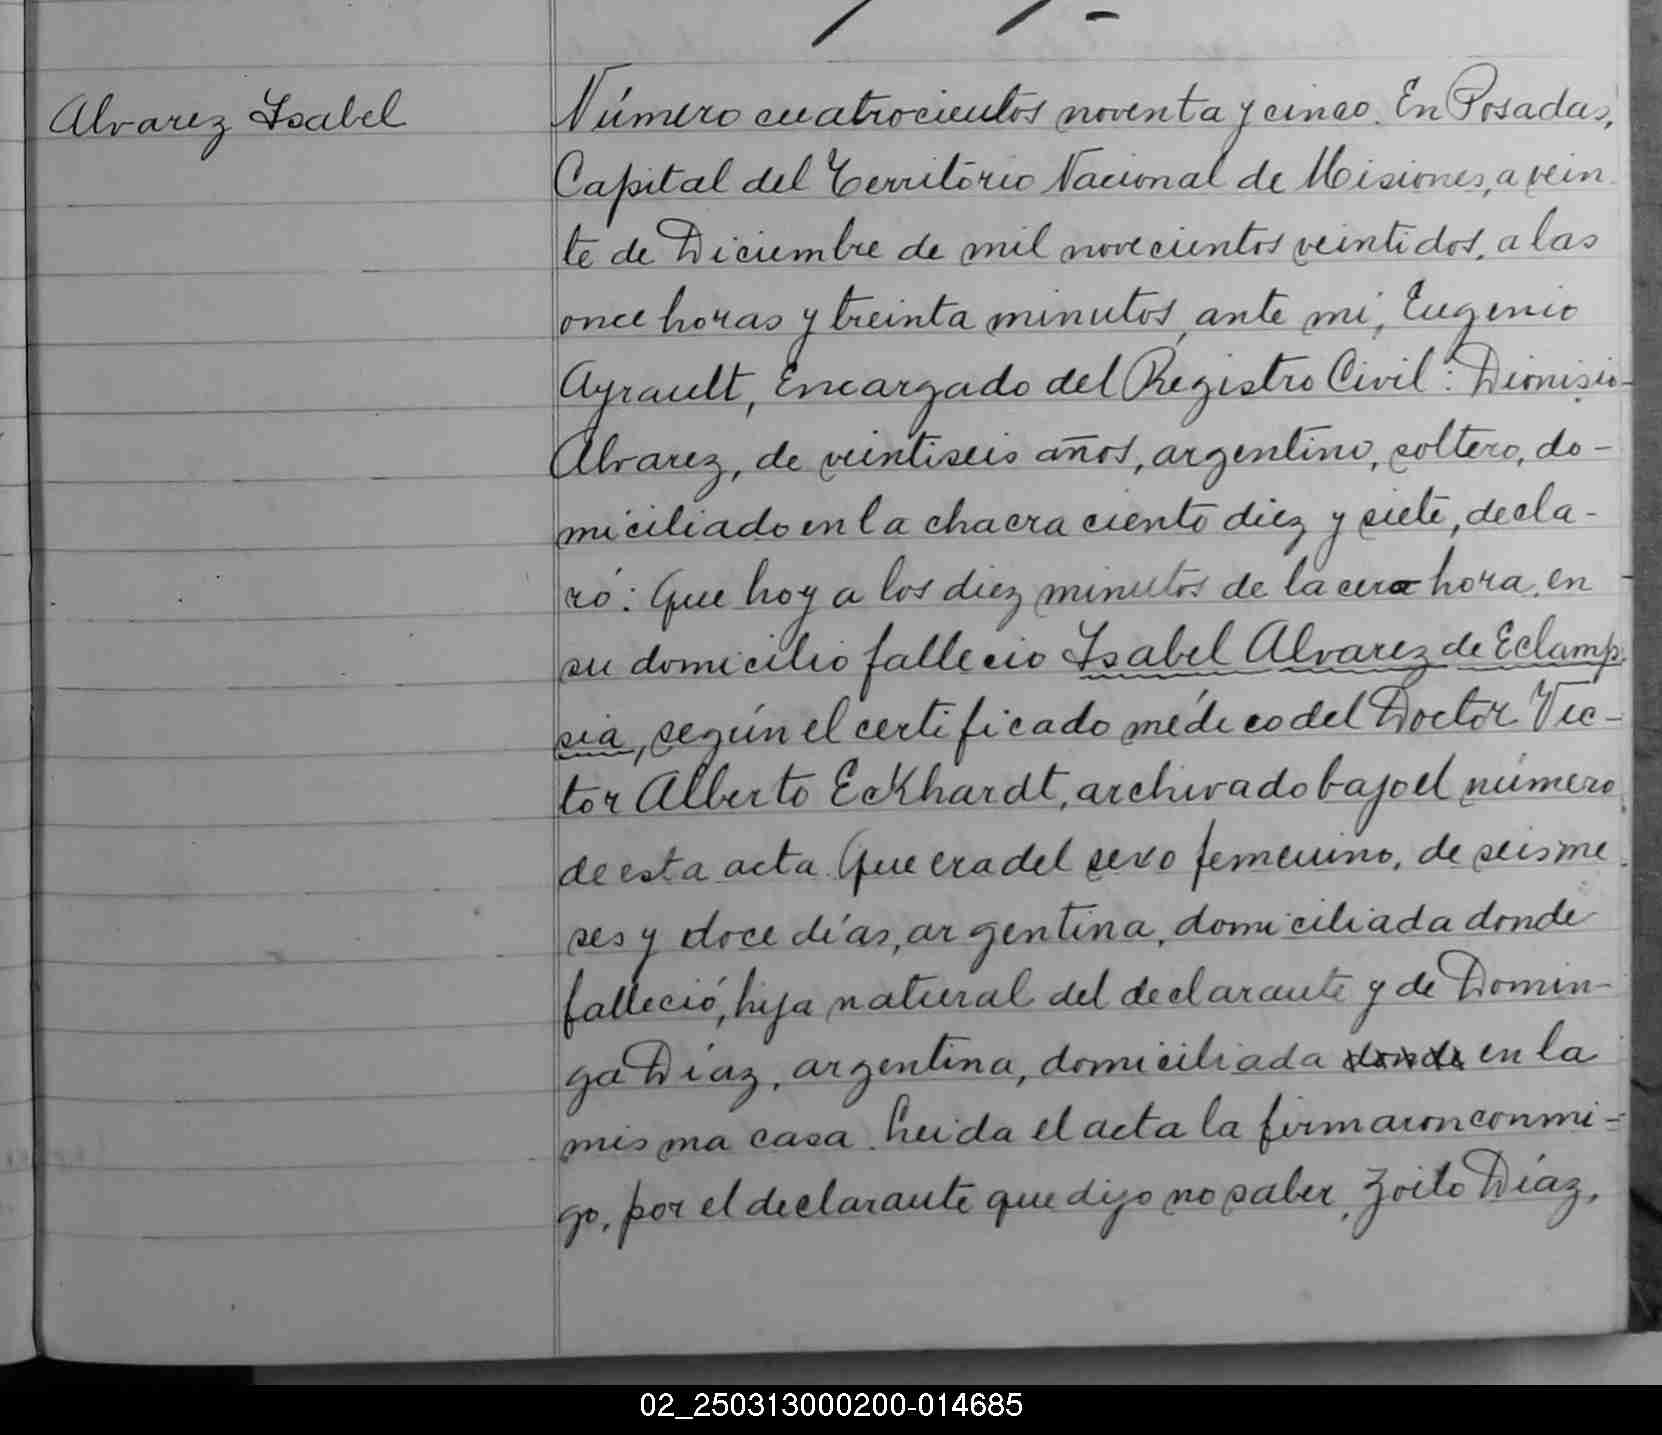 Alvarez Isabel
Número cuatrocientos noventa y cinco. En Posadas,
Capital del Territorio Nacional de Misiones, a vein
te de Diciembre de mil novecientos veintidos, a las
once horas y treinta minutos, ante mi, Eugenio
Ayrault, Encargado del Registro Civil: Dionisio
Alvarez, de veintiseis años, argentino, soltero, do-
miciliado en la chacra ciento diez y siete, decla-
ró: Que hoy a los diez minutos de la cera hora, en
su domicilio fallecio Isabel Alvarez de Eclamp
sia, según el certificado médico del Doctor Vic-
tor Alberto Eckhardt, archivado bajo el número
de esta acta. Que era del sexo femenino, de seis me
ses y doce días, argentina, domiciliada donde
falleció, hija natural del declarante y de Domin-
ga Díaz, argentina, domiciliada donde en la
misma casa. Leida el acta la firmaron conmi-
go, por el declarante que dijo no saber, Zoilo Díaz,
02_250313000200-014685